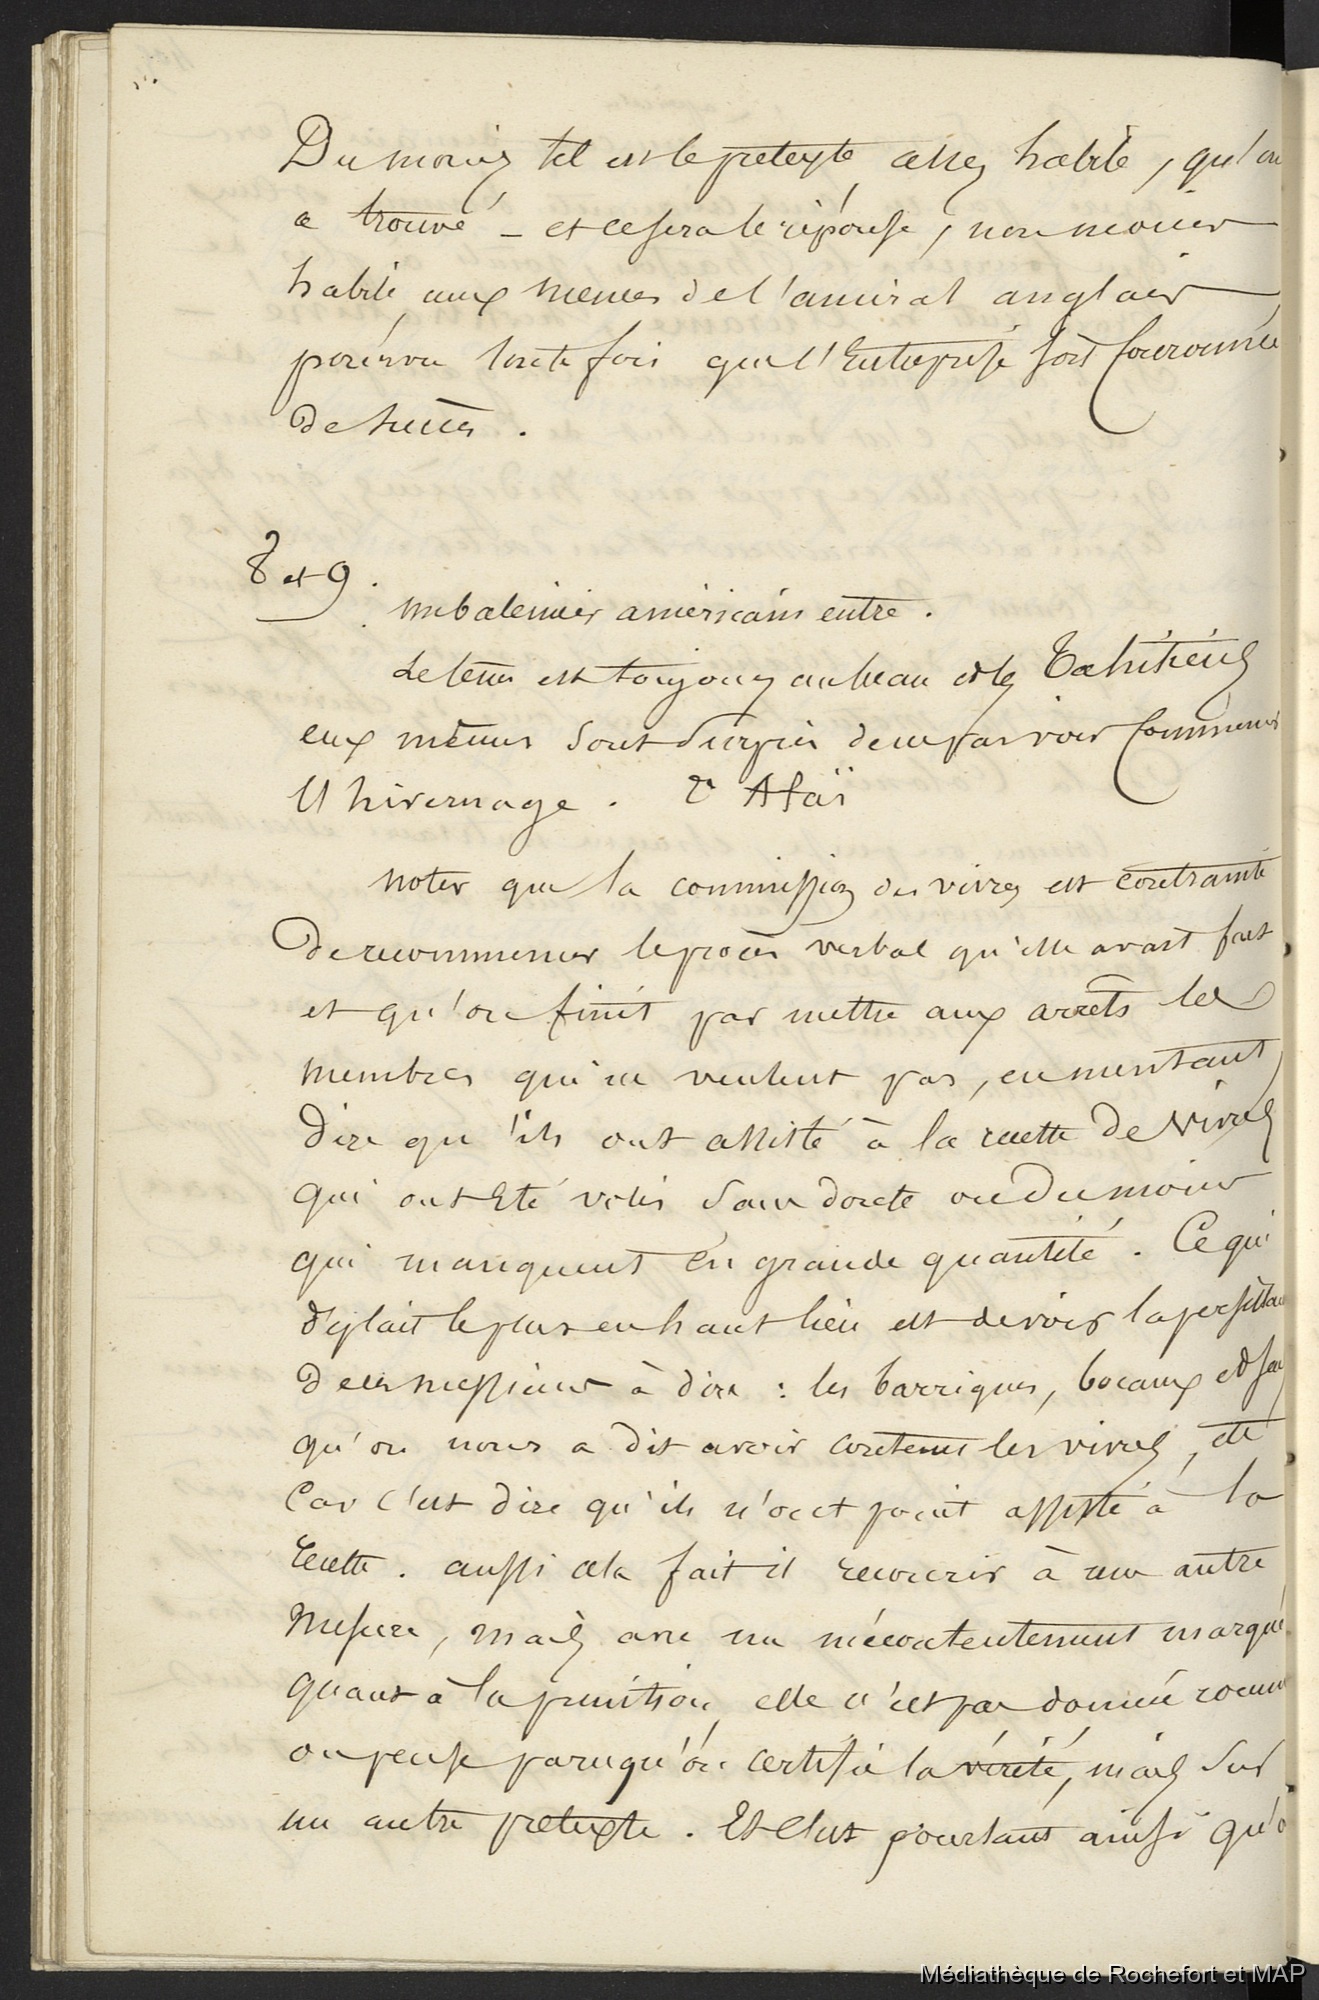 Du moins tel est le pretexte assez habile, qu'on
a trouvé – et ce sera la réponse, non moins
habile, aux menees de l'amiral anglais
pourvu toutefois que l'Entreprise soit Couronnée
de succès.
8 et 9.
un baleinier américain entre.
Le tems est toujours au beau et les Tahitiens
eux mêmes sont surpris de ne pas voir Commencer
l'hivernage. Afaï
noter que la commission des vivres est contrainte
De recommencer le procès verbal qu'elle avait fait
et qu'on finit par mettre aux arrêts les
membres qui ne veulent pas, en mentant,
dire qu'ils ont assisté à la recette de vivres
qui ont Eté volés sans doute ou Du moins
qui manquent en grande quantité. Ce qui
déplait le plus en haut lieu est de voir la persistance
de ces messieurs à dire : les barriques, bocaux et
qu'on nous a dit avoir contenu les vivres, etc
Car c'est dire qu'ils n'ont point assisté à la
recette. aussi cela fait il recourir à une autre
Mesure, mais avec un mécontentement marqué.
Quant à la punition, elle n'est pas donnée comme
on pense parcequ'on certifie la vérité, mais sur
un autre pretexte. Et c'est pourtant ainsi qu'o
Médiathèque de Rochefort et MAP